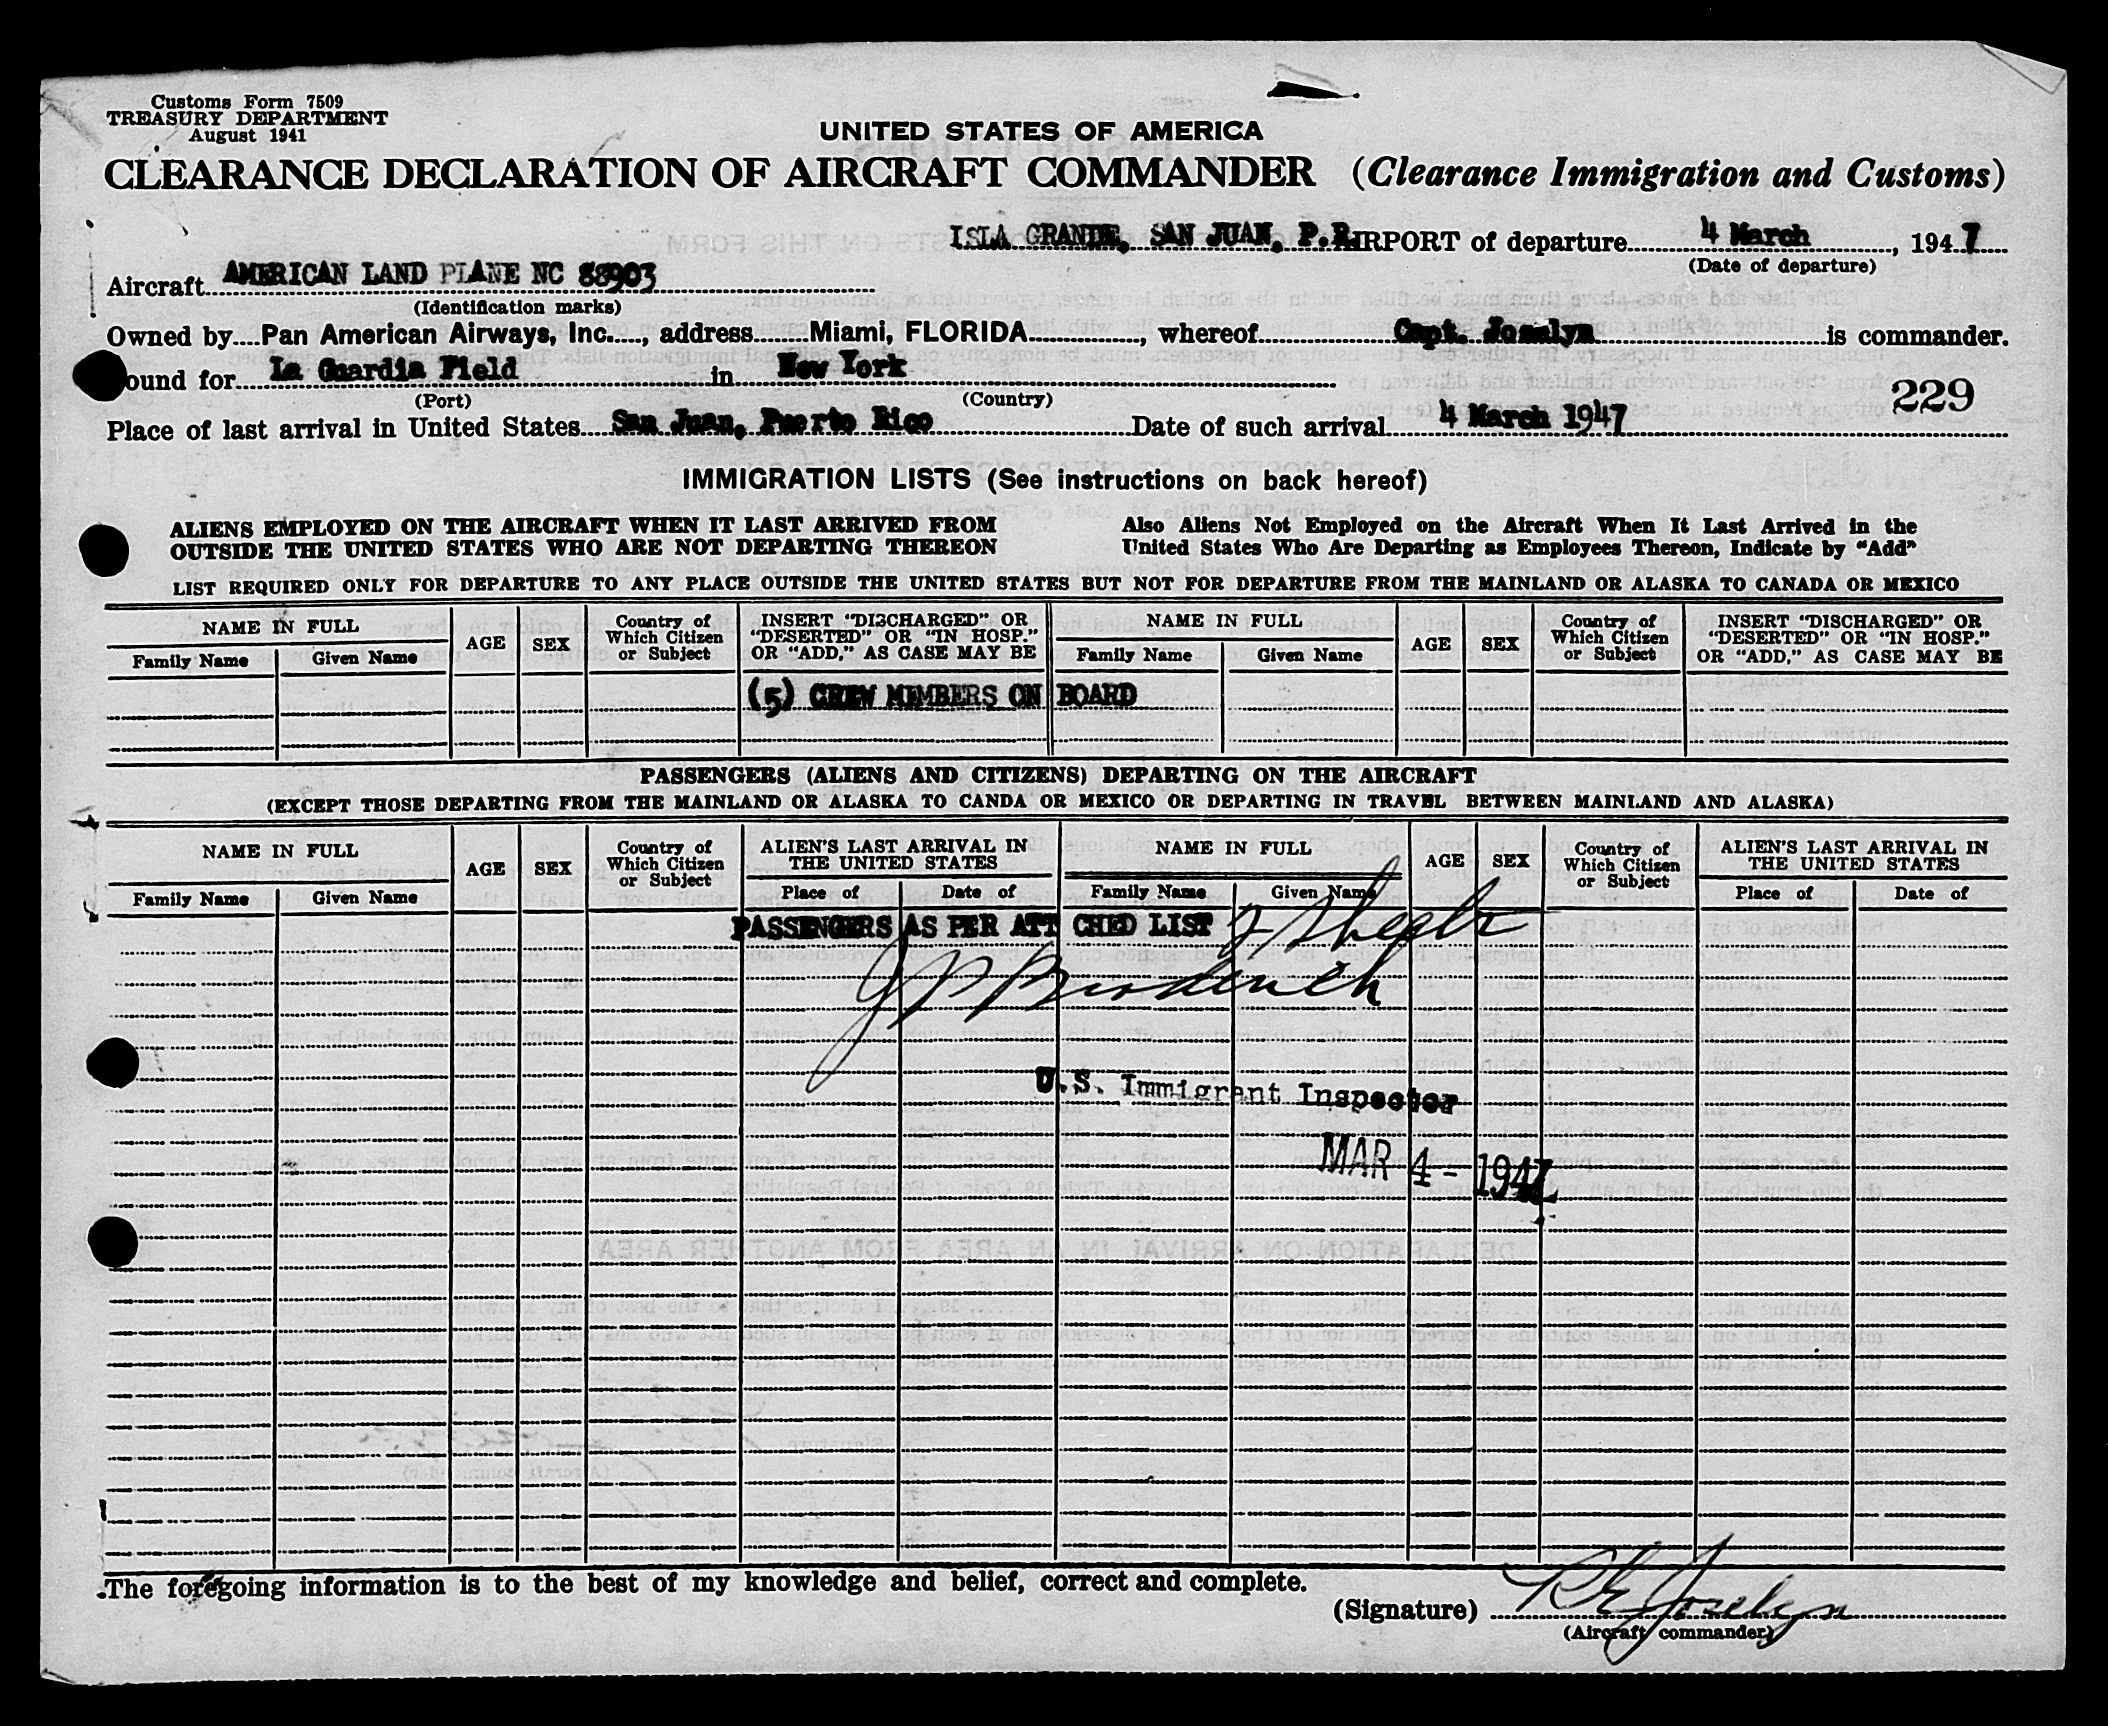 Customs Form 7509
TREASURY DEPARTMENT
August 1941
UNITED STATES OF AMERICA
CLEARANCE DECLARATION OF AIRCRAFT COMMANDER (Clearance Immigration and Customs)
ISLA GRANDE, SAN JUAN, P.R. AIRPORT of departure 4 March, 1947
(Date of departure)
Aircraft AMERICAN LAND PLANE NC 88903
(Identification marks)
Owned by Pan American Airways, Inc., address Miami, FLORIDA, whereof Capt. Joselyn is commander.
ound for La Guardia Field in New York
(Port) (Country)
229
Place of last arrival in United States San Juan, Puerto Rico Date of such arrival 4 March 1947
IMMIGRATION LISTS (See instructions on back hereof)
ALIENS EMPLOYED ON THE AIRCRAFT WHEN IT LAST ARRIVED FROM Also Aliens Not Employed on the Aircraft When It Last Arrived in the
OUTSIDE THE UNITED STATES WHO ARE NOT DEPARTING THEREON United States Who Are Departing as Employees Thereon, Indicate by "Add"
LIST REQUIRED ONLY FOR DEPARTURE TO ANY PLACE OUTSIDE THE UNITED STATES BUT NOT FOR DEPARTURE FROM THE MAINLAND OR ALASKA TO CANADA OR MEXICO
NAME IN FULL AGE SEX Country of Which Citizen or Subject INSERT "DISCHARGED" OR "DESERTED" OR "IN HOSP." OR "ADD," AS CASE MAY BE NAME IN FULL AGE SEX Country of Which Citizen or Subject INSERT "DISCHARGED" OR "DESERTED" OR "IN HOSP." OR "ADD," AS CASE MAY BE
Family Name Given Name Family Name Given Name
(5) CREW MEMBERS ON BOARD
PASSENGERS (ALIENS AND CITIZENS) DEPARTING ON THE AIRCRAFT
(EXCEPT THOSE DEPARTING FROM THE MAINLAND OR ALASKA TO CANDA OR MEXICO OR DEPARTING IN TRAVEL BETWEEN MAINLAND AND ALASKA)
NAME IN FULL AGE SEX Country of Which Citizen or Subject ALIEN'S LAST ARRIVAL IN THE UNITED STATES NAME IN FULL AGE SEX Country of Which Citizen or Subject ALIEN'S LAST ARRIVAL IN THE UNITED STATES
Family Name Given Name Place of Date of Family Name Given Name Place of Date of
PASSENGERS AS PER ATT CHED LIST
U.S. Immigrant Inspector
MAR 4 - 1947
The foregoing information is to the best of my knowledge and belief, correct and complete.
(Signature) R E Joselyn
(Aircraft commander)